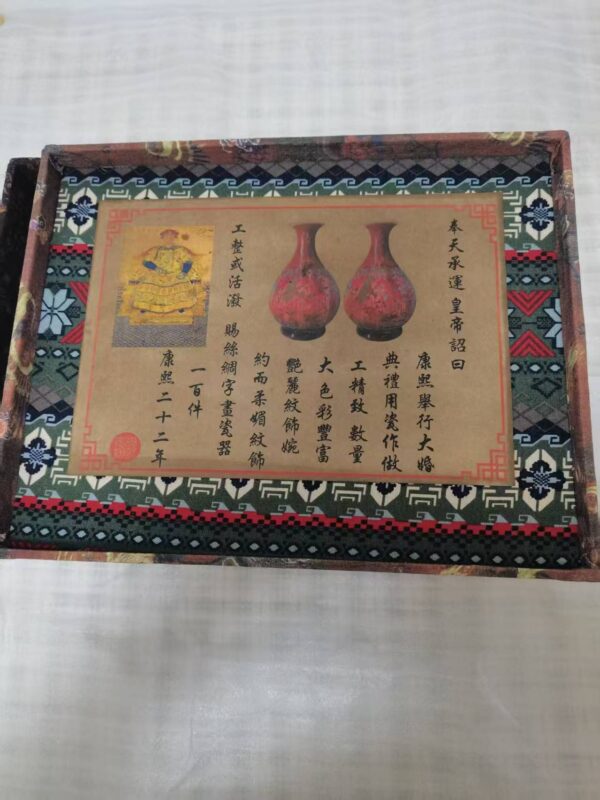 奉天承運 皇帝詔曰
康熙舉行大婚
典禮用瓷作做
工精致 數量
大色彩豐富
艷麗紋飾婉
約而柔媚紋飾
工整或活潑 賜絲綢字畫瓷器
一百件
康熙二十二年